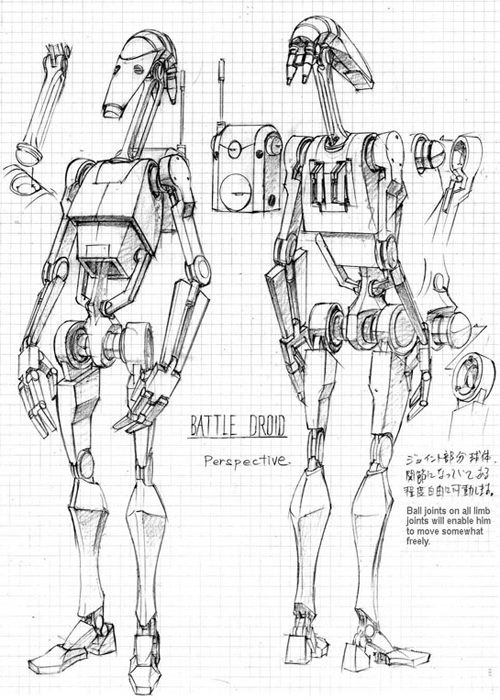 BATTLE DROID
Perspective.
ジョイント部分球体.
関節になっている
程度自由に可動します。
Ball joints on all limb
joints will enable him
to move somewhat
freely.